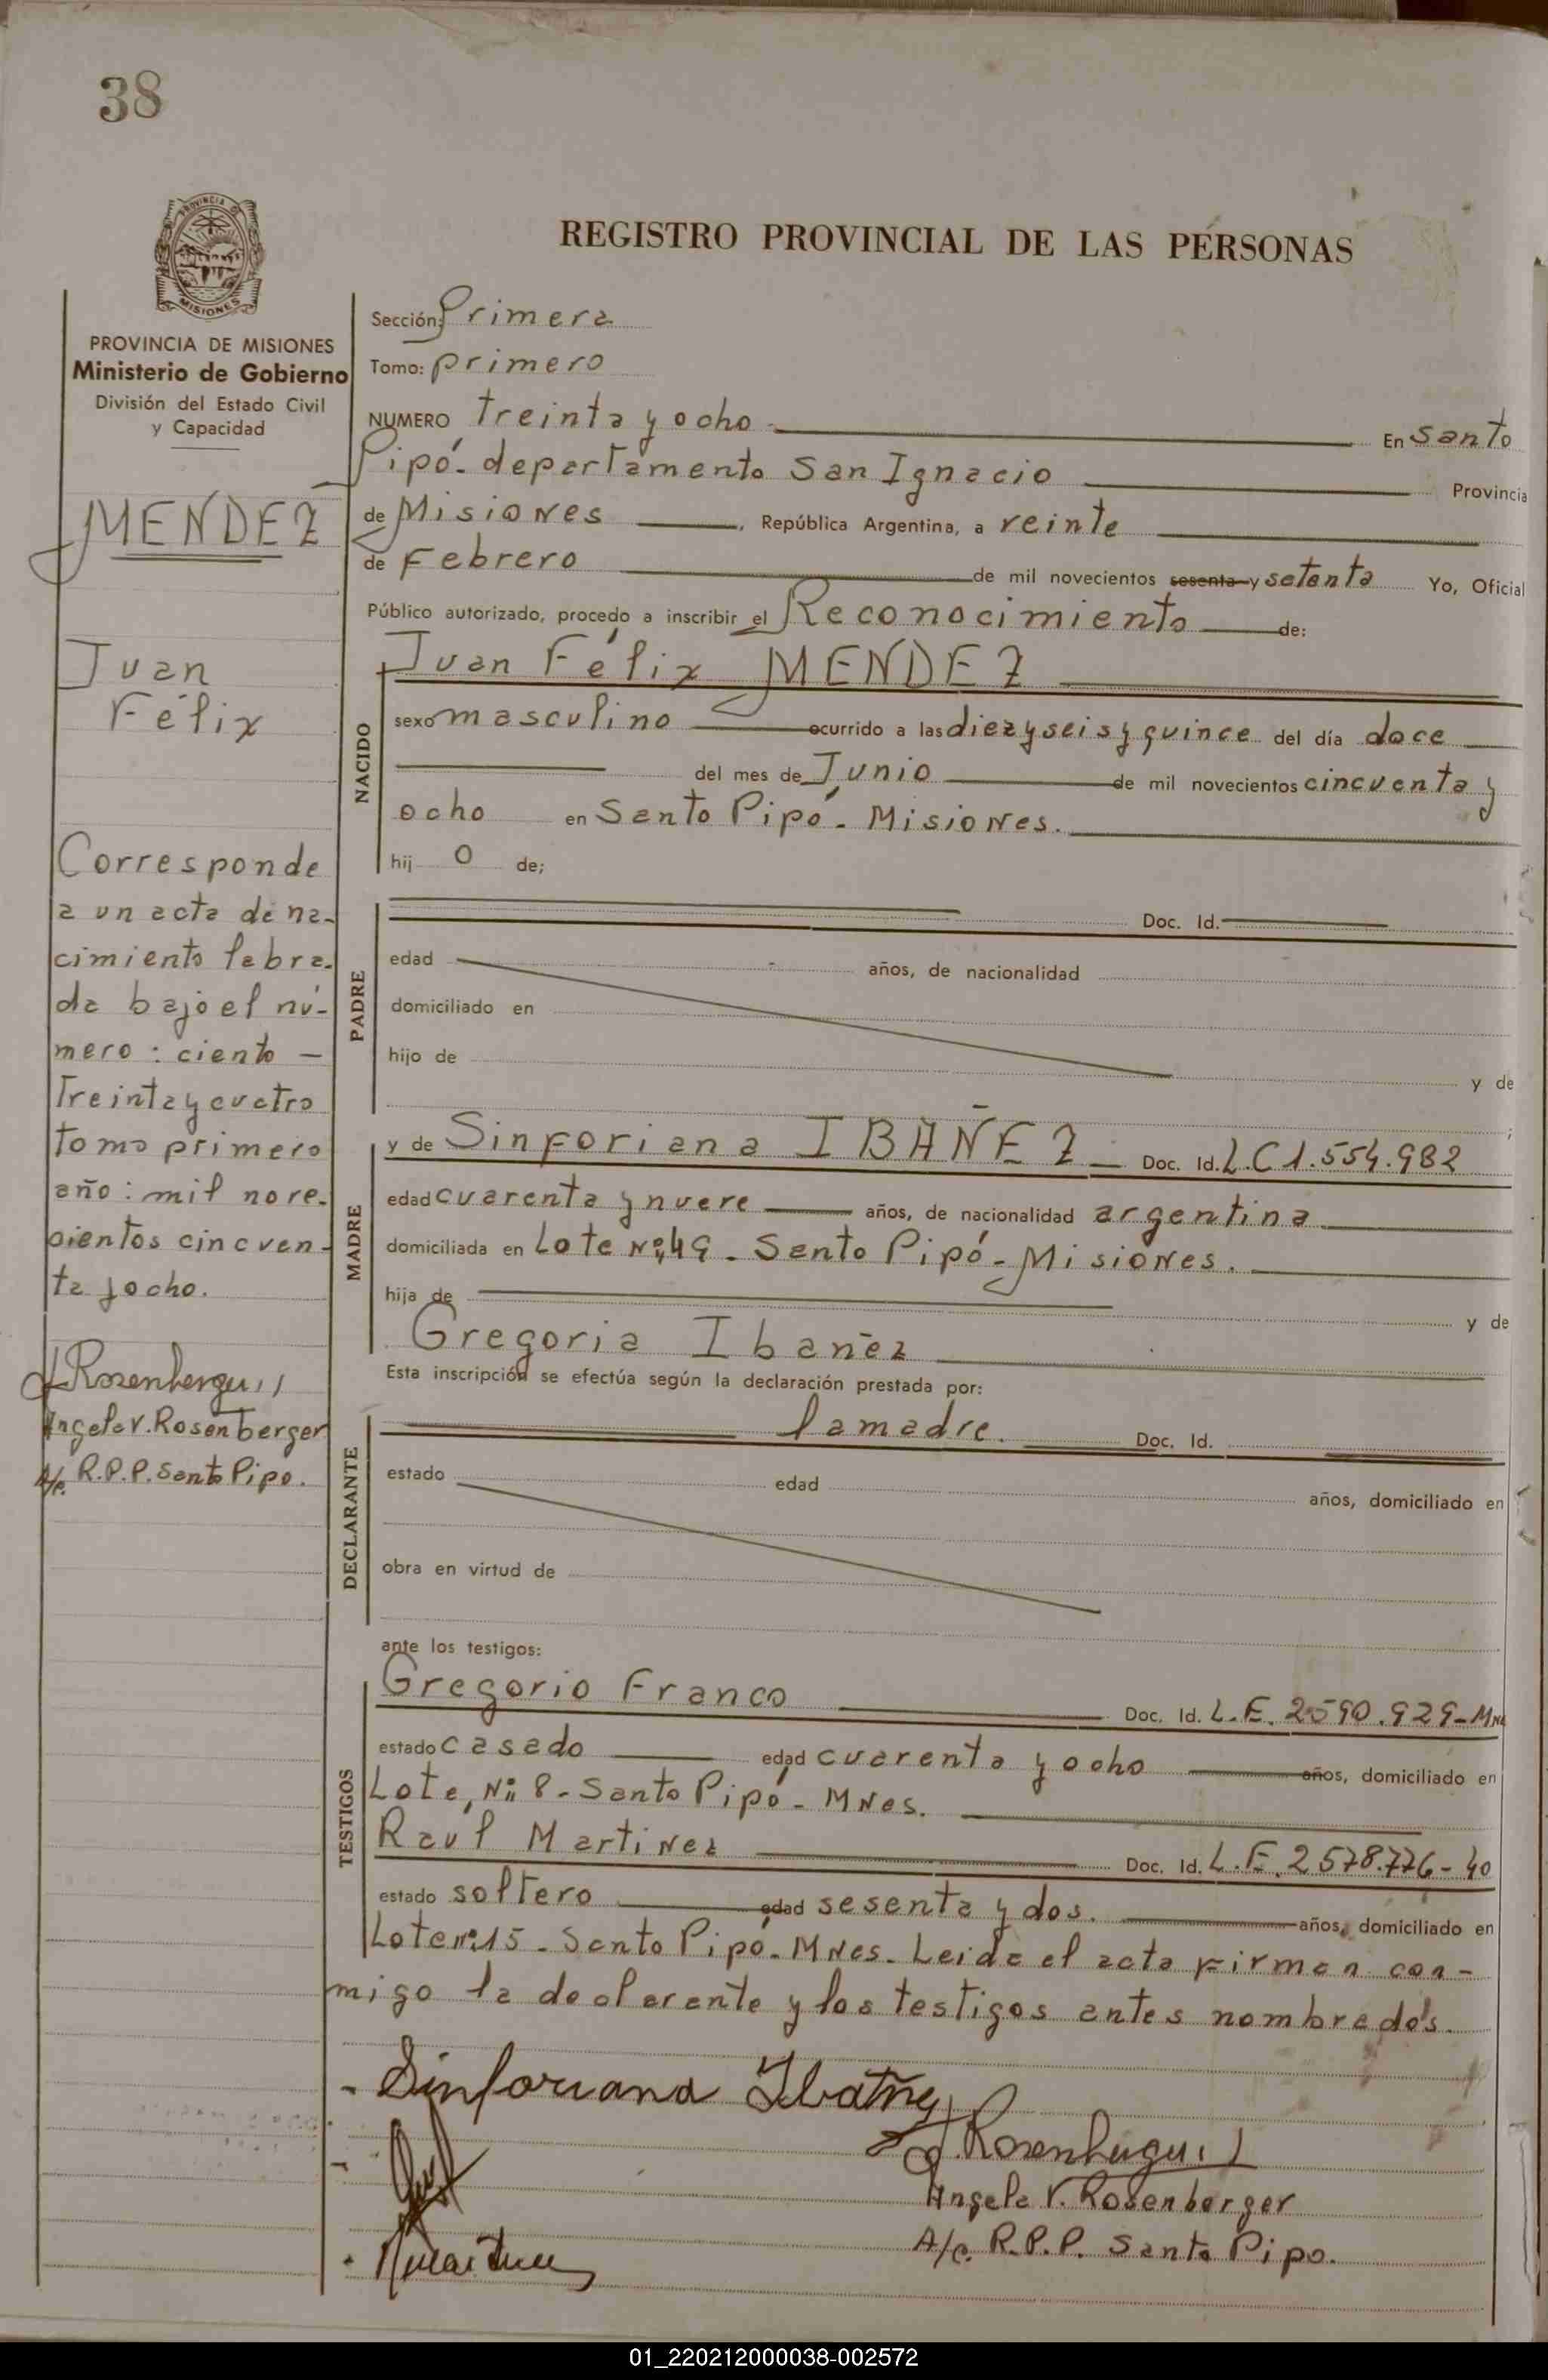 38
REGISTRO PROVINCIAL DE LAS PERSONAS
PROVINCIA DE
MISIONES
PROVINCIA DE MISIONES
Ministerio de Gobierno
División del Estado Civil
y Capacidad
MENDEZ
Juan
Félix
Corresponde
a un acta de na-
cimiento labra-
da bajo el nú-
mero: ciento —
Treinta y cuatro
tomo primero
año: mil nove-
cientos cincuen-
ta y ocho.
Angela V. Rosenberger
A/c. R.P.P. Santo Pipo.
Sección: Primera
Tomo: primero
NUMERO treinta y ocho En Santo
Pipó- departamento San Ignacio Provincia
de Misiones, República Argentina, a veinte
de Febrero de mil novecientos sesenta y setenta Yo, Oficial
Público autorizado, procedo a inscribir el Reconocimiento de:
NACIDO
Juan Félix MENDEZ
sexo masculino ocurrido a las diez y seis y quince del día doce
del mes de Junio de mil novecientos cincuenta y
ocho en Santo Pipó- Misiones.
hij o de;
PADRE
Doc. Id.
edad años, de nacionalidad
domiciliado en
hijo de y de
MADRE
y de Sinforiana IBAÑEZ Doc. Id. L.C 1.554.982
edad cuarenta y nueve años, de nacionalidad argentina
domiciliada en Lote Nº 49- Santo Pipó- Misiones.
hija de y de
Gregoria Ibañez
Esta inscripción se efectúa según la declaración prestada por:
DECLARANTE
la madre. Doc. Id.
estado edad años, domiciliado en
obra en virtud de
ante los testigos:
TESTIGOS
Gregorio Franco Doc. Id. L.E. 2590.929-Mnes
estado casado edad cuarenta y ocho años, domiciliado en
Lote, Nº 8- Santo Pipó- MNes.
Raúl Martinez Doc. Id. L.E. 2578.776-40
estado soltero edad sesenta y dos. años, domiciliado en
Lote nº 15- Santo Pipó- MNes- Leida el acta firman con-
migo la declarente y los testigos antes nombrados.
Sinforiana Ibañez
Angela V. Rosenberger
A/c. R.P.P. Santo Pipo.
01_220212000038-002572